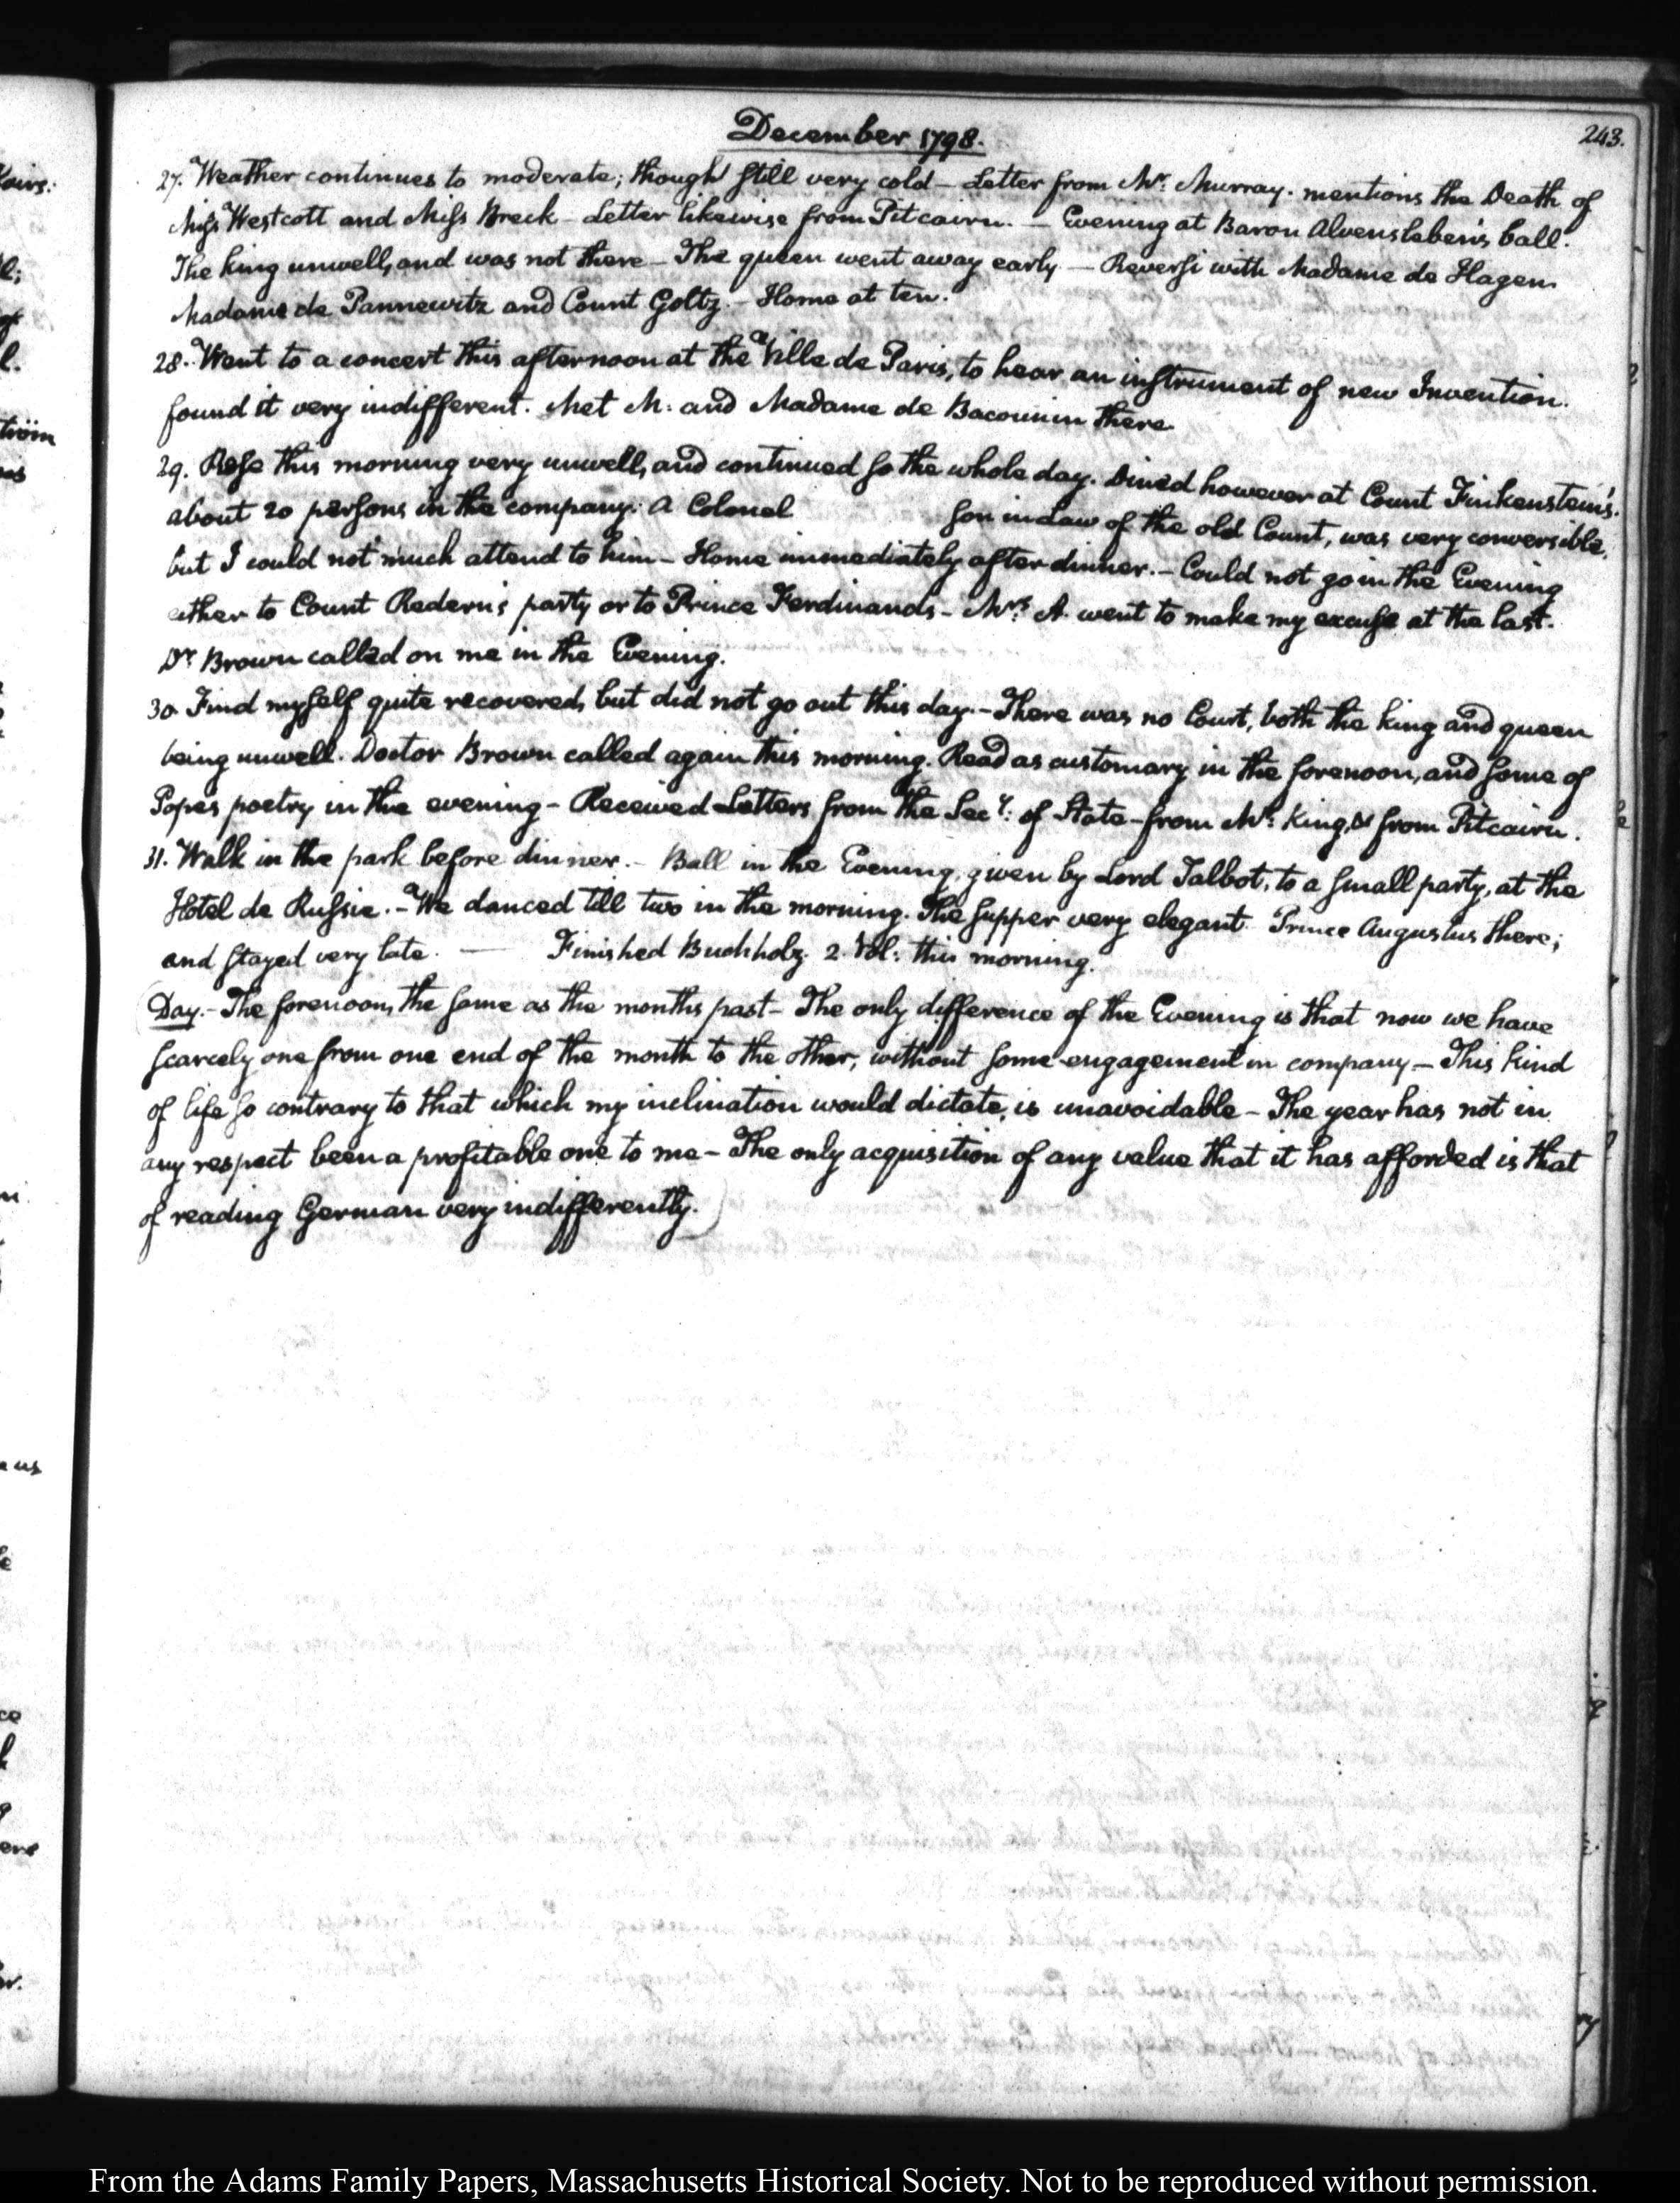 December 1798.
243.
27. Weather continues to moderate; though still very cold – Letter from Mr: Murray. mentions the Death of
Miss Westcott and Miss Breck – Letter likewise from Pitcairn. — Evening at Baron Alvensleben's ball.
The king unwell, and was not there – The queen went away early — Reversi with Madame de Hagen
Madame de Pannewitz and Count Goltz. – Home at ten.
28. Went to a concert this afternoon at the Ville de Paris, to hear an instrument of new Invention.
found it very indifferent. Met M: and Madame de Bacounin there.
29. Rose this morning very unwell, and continued so the whole day. Dined however at Count Finkenstein's.
about 20 persons in the company. A Colonel son in law of the old Count, was very conversible,
but I could not much attend to him – Home immediately after dinner. – Could not go in the Evening
either to Count Redern's party or to Prince Ferdinands – Mrs: A. went to make my excuse at the last.
Dr Brown called on me in the Evening.
30. Find myself quite recovered, but did not go out this day. – There was no Court, both the king and queen
being unwell. Doctor Brown called again this morning. Read as customary in the forenoon, and some of
Popes poetry in the evening – Received Letters from the Secy: of State – from Mr: King, & from Pitcairn.
31. Walk in the park before dinner. – Ball in the Evening, given by Lord Talbot, to a small party, at the
Hotel de Russie. – We danced till two in the morning. The supper very elegant. Prince Augustus there;
and stayed very late. — Finished Buchholz. 2. Vol: this morning.
(Day. – The forenoon, the same as the months past – The only difference of the Evening is that now we have
scarcely one from one end of the month to the other, without some engagement in company – This kind
of life so contrary to that which my inclination would dictate, is unavoidable – The year has not in
any respect been a profitable one to me – The only acquisition of any value that it has afforded is that
of reading German very indifferently.)
From the Adams Family Papers, Massachusetts Historical Society. Not to be reproduced without permission.